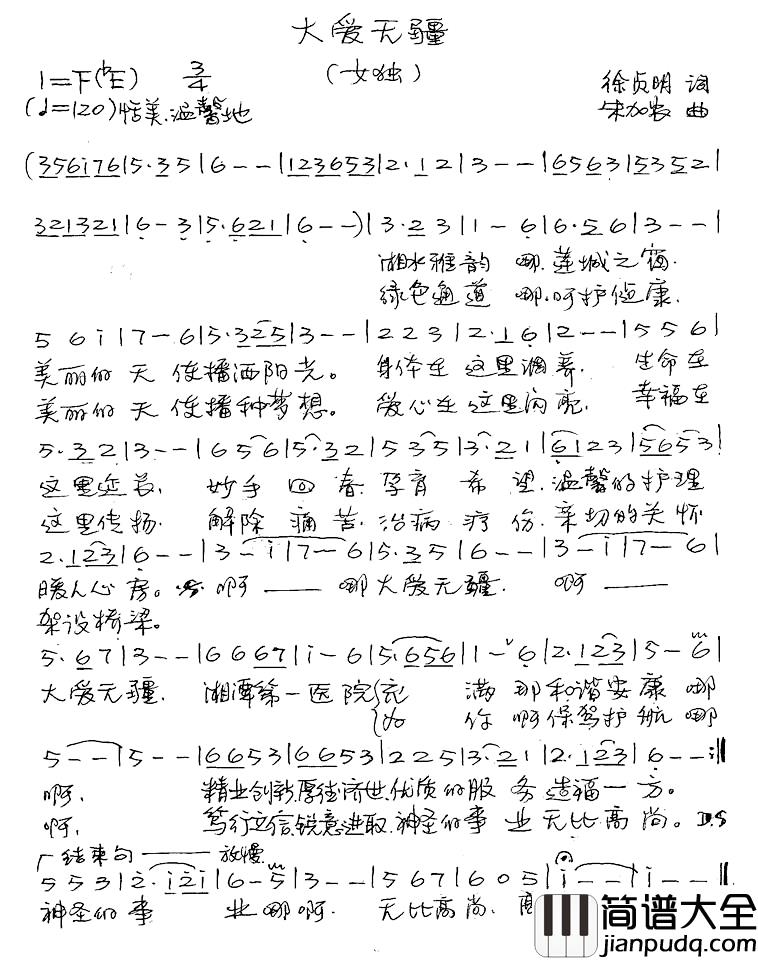 大爱无疆
1=F(♭E) 3/4 (女独) 徐贞明 词
(♩=120) 恬美.温馨地 宋加农 曲
(356i76|5·35|6--|123653|2·12|3--|6563|5352|
321321|6-3|5·621|6--)|3·23|1-6|6·56|3--|
湘水雅韵 哪.莲城之
绿色通道 哪.呵护健康.
56i|7-6|5·325|3--|223|2·16|2--|556|
美丽的天使播洒阳光。 身体在这里调养. 生命在
美丽的天使播种梦想。 爱心在这里闪亮. 幸福在
5·32|3--|656|5·32|535|3·21|6123|5653|
这里延长. 妙手回春.孕育希望.温馨的护理
这里传扬. 解除痛苦.治病疗伤.亲切的关怀
2·123|6--|3-i|7-6|5·35|6--|3-i|7-6|
暖人心房。 啊—— 哪大爱无疆. 啊——
架设桥梁。
5·67|3--|6667|i-6|5·656|1-6|2·123|5-6|
大爱无疆. 湘潭第一医院 充满那和谐安康哪
为你啊保驾护航哪
5--|5--|6653|6653|225|3·21|2·123|6--:‖
啊. 精业创新.厚德济世.优质的服务造福一方。
啊. 笃行立信.锐意进取.神圣的事业无比高尚。D.S
结束句——放慢
553|2·i2i|6-5|3--|567|605|i--|i--‖
神圣的事业哪啊. 无比高尚.
简谱大全
jianpudq.com